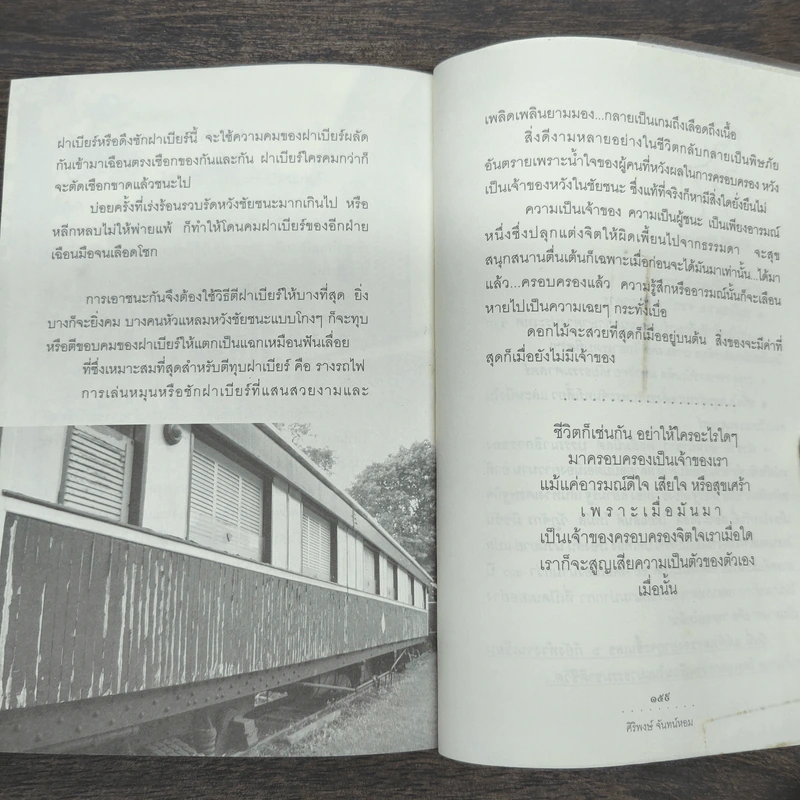 ฝาเบียร์หรือดึงชักฝาเบียร์นี้ จะใช้ความคมของฝาเบียร์ผลัด
กันเข้ามาเฉือนตรงเชือกของกันและกัน ฝาเบียร์ใครคมกว่าก็
จะตัดเชือกขาดแล้วชนะไป
บ่อยครั้งที่เร่งร้อนรวบรัดหวังชัยชนะมากเกินไป หรือ
หลีกหลบไม่ให้พ่ายแพ้ ก็ทำให้โดนคมฝาเบียร์ของอีกฝ่าย
เฉือนมือจนเลือดโชก
การเอาชนะกันจึงต้องใช้วิธีตีฝาเบียร์ให้บางที่สุด ยิ่ง
บางก็จะยิ่งคม บางคนหัวแหลมหวังชัยชนะแบบโกงๆ ก็จะทุบ
หรือตีขอบคมของฝาเบียร์ให้แตกเป็นแฉกเหมือนฟันเลื่อย
ที่ซึ่งเหมาะสมที่สุดสำหรับตีทุบฝาเบียร์ คือ รางรถไฟ
การเล่นหมุนหรือชักฝาเบียร์ที่แสนสวยงามและ
เพลิดเพลินยามมอง...กลายเป็นเกมถึงเลือดถึงเนื้อ
สิ่งดีงามหลายอย่างในชีวิตกลับกลายเป็นพิษภัย
อันตรายเพราะน้ำใจของผู้คนที่หวังผลในการครอบครอง หวัง
เป็นเจ้าของหวังในชัยชนะ ซึ่งแท้ที่จริงก็หามีสิ่งใดยั่งยืนไม่
ความเป็นเจ้าของ ความเป็นผู้ชนะ เป็นเพียงอารมณ์
หนึ่งซึ่งปลุกแต่งจิตให้ผิดเพี้ยนไปจากธรรมดา จะสุข
สนุกสนานตื่นเต้นก็เฉพาะเมื่อก่อนจะได้มันมาเท่านั้น...ได้มา
แล้ว...ครอบครองแล้ว ความรู้สึกหรืออารมณ์นั้นก็จะเลือน
หายไปเป็นความเฉยๆ กระทั่งเบื่อ
ดอกไม้จะสวยที่สุดก็เมื่ออยู่บนต้น สิ่งของจะมีค่าที่
สุดก็เมื่อยังไม่มีเจ้าของ
ชีวิตก็เช่นกัน อย่าให้ใครอะไรใดๆ
มาครอบครองเป็นเจ้าของเรา
แม้แค่อารมณ์ดีใจ เสียใจ หรือสุขเศร้า
เพราะเมื่อมันมา
เป็นเจ้าของครอบครองจิตใจเราเมื่อใด
เราก็จะสูญเสียความเป็นตัวของตัวเอง
เมื่อนั้น
๑๕๙
ศิริพงษ์ จันทน์หอม